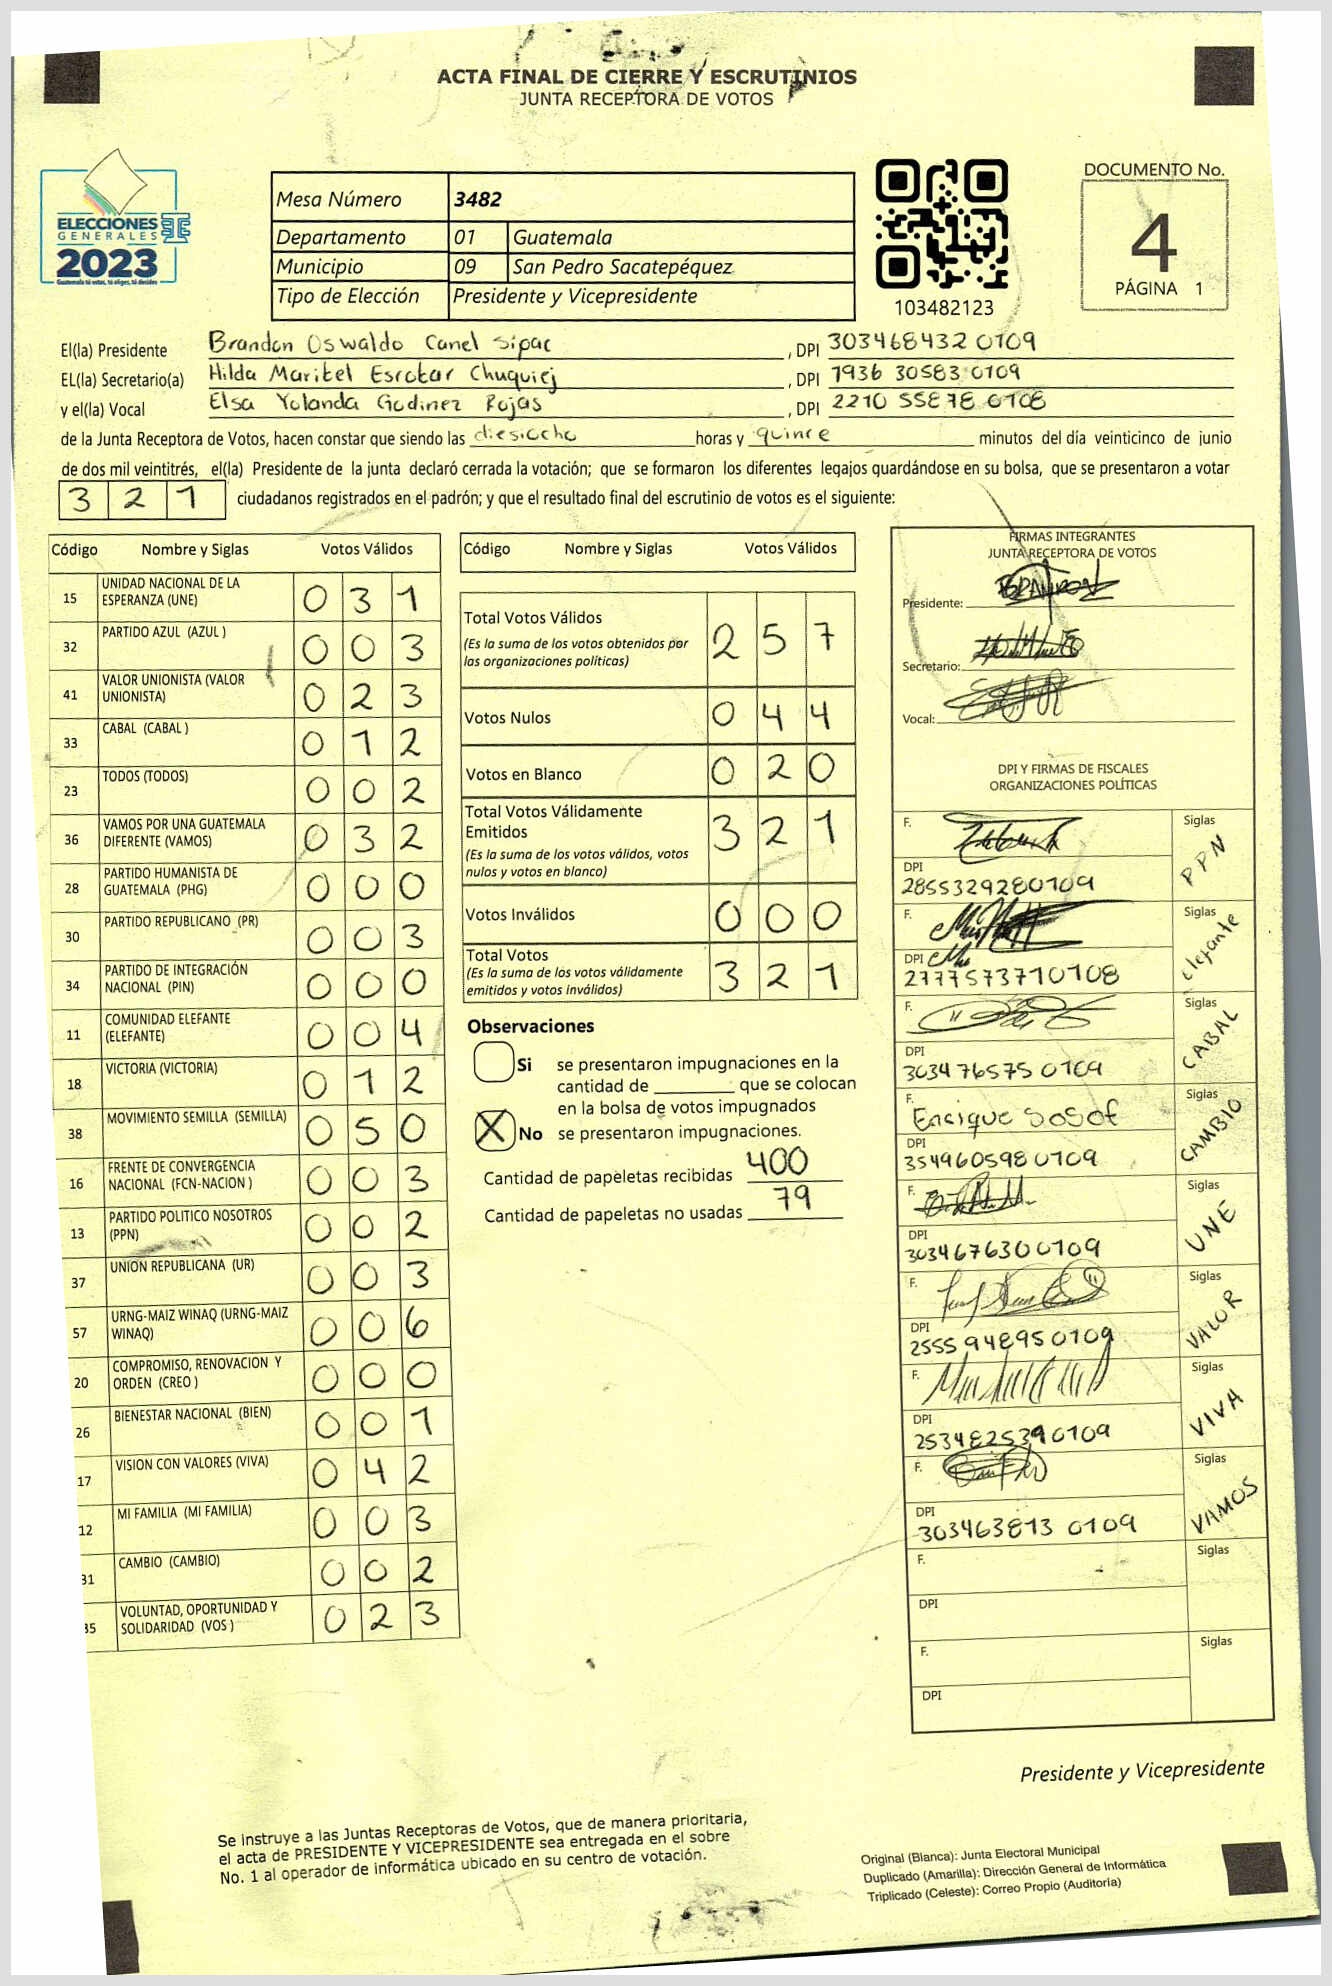 ACTA FINAL DE CIERRE Y ESCRUTINIOS
JUNTA RECEPTORA DE VOTOS
ELECCIONES
GENERALES
2023
Guatemala tú votas, tú eliges, tú decides
Mesa Número 3482
Departamento 01 Guatemala
Municipio 09 San Pedro Sacatepéquez
Tipo de Elección Presidente y Vicepresidente
103482123
DOCUMENTO No.
4
PÁGINA 1
El(la) Presidente Brandon Oswaldo Canel Sipac , DPI 303468432 0109
EL(la) Secretario(a) Hilda Maribel Escobar Chuquiej , DPI 1936 30583 0109
y el(la) Vocal Elsa Yolanda Godinez Rojas , DPI 2210 55878 0108
de la Junta Receptora de Votos, hacen constar que siendo las diesiocho horas y quince minutos del día veinticinco de junio
de dos mil veintitrés, el(la) Presidente de la junta declaró cerrada la votación; que se formaron los diferentes legajos guardándose en su bolsa, que se presentaron a votar
3 2 1 ciudadanos registrados en el padrón; y que el resultado final del escrutinio de votos es el siguiente:
Código Nombre y Siglas Votos Válidos
15 UNIDAD NACIONAL DE LA ESPERANZA (UNE) 0 3 1
32 PARTIDO AZUL (AZUL ) 0 0 3
41 VALOR UNIONISTA (VALOR UNIONISTA) 0 2 3
33 CABAL (CABAL ) 0 1 2
23 TODOS (TODOS) 0 0 2
36 VAMOS POR UNA GUATEMALA DIFERENTE (VAMOS) 0 3 2
28 PARTIDO HUMANISTA DE GUATEMALA (PHG) 0 0 0
30 PARTIDO REPUBLICANO (PR) 0 0 3
34 PARTIDO DE INTEGRACIÓN NACIONAL (PIN) 0 0 0
11 COMUNIDAD ELEFANTE (ELEFANTE) 0 0 4
18 VICTORIA (VICTORIA) 0 1 2
38 MOVIMIENTO SEMILLA (SEMILLA) 0 5 0
16 FRENTE DE CONVERGENCIA NACIONAL (FCN-NACION ) 0 0 3
13 PARTIDO POLITICO NOSOTROS (PPN) 0 0 2
37 UNION REPUBLICANA (UR) 0 0 3
57 URNG-MAIZ WINAQ (URNG-MAIZ WINAQ) 0 0 6
20 COMPROMISO, RENOVACION Y ORDEN (CREO ) 0 0 0
26 BIENESTAR NACIONAL (BIEN) 0 0 1
17 VISION CON VALORES (VIVA) 0 4 2
12 MI FAMILIA (MI FAMILIA) 0 0 3
31 CAMBIO (CAMBIO) 0 0 2
35 VOLUNTAD, OPORTUNIDAD Y SOLIDARIDAD (VOS ) 0 2 3
Código Nombre y Siglas Votos Válidos
Total Votos Válidos 2 5 7
(Es la suma de los votos obtenidos por
las organizaciones políticas)
Votos Nulos 0 4 4
Votos en Blanco 0 2 0
Total Votos Válidamente
Emitidos 3 2 1
(Es la suma de los votos válidos, votos
nulos y votos en blanco)
Votos Inválidos 0 0 0
Total Votos 3 2 1
(Es la suma de los votos válidamente
emitidos y votos inválidos)
Observaciones
Si se presentaron impugnaciones en la
cantidad de ________ que se colocan
en la bolsa de votos impugnados
X No se presentaron impugnaciones.
Cantidad de papeletas recibidas 400
Cantidad de papeletas no usadas 79
FIRMAS INTEGRANTES
JUNTA RECEPTORA DE VOTOS
Presidente:
Secretario:
Vocal:
DPI Y FIRMAS DE FISCALES
ORGANIZACIONES POLÍTICAS
F. Siglas PPN
DPI
2855329280109
F. Siglas Elefante
DPI
2777573710108
F. Siglas CABAL
DPI
303476575 0109
F. Enrique Sosof Siglas CAMBIO
DPI
354960598 0109
F. Siglas UNE
DPI
3034676300109
F. Siglas VALOR
DPI
2555 948950109
F. Siglas VIVA
DPI
253482539 0109
F. Siglas VAMOS
DPI
303463813 0109
F. Siglas
DPI
F. Siglas
DPI
Presidente y Vicepresidente
Se instruye a las Juntas Receptoras de Votos, que de manera prioritaria,
el acta de PRESIDENTE Y VICEPRESIDENTE sea entregada en el sobre
No. 1 al operador de informática ubicado en su centro de votación.
Original (Blanca): Junta Electoral Municipal
Duplicado (Amarilla): Dirección General de Informática
Triplicado (Celeste): Correo Propio (Auditoría)